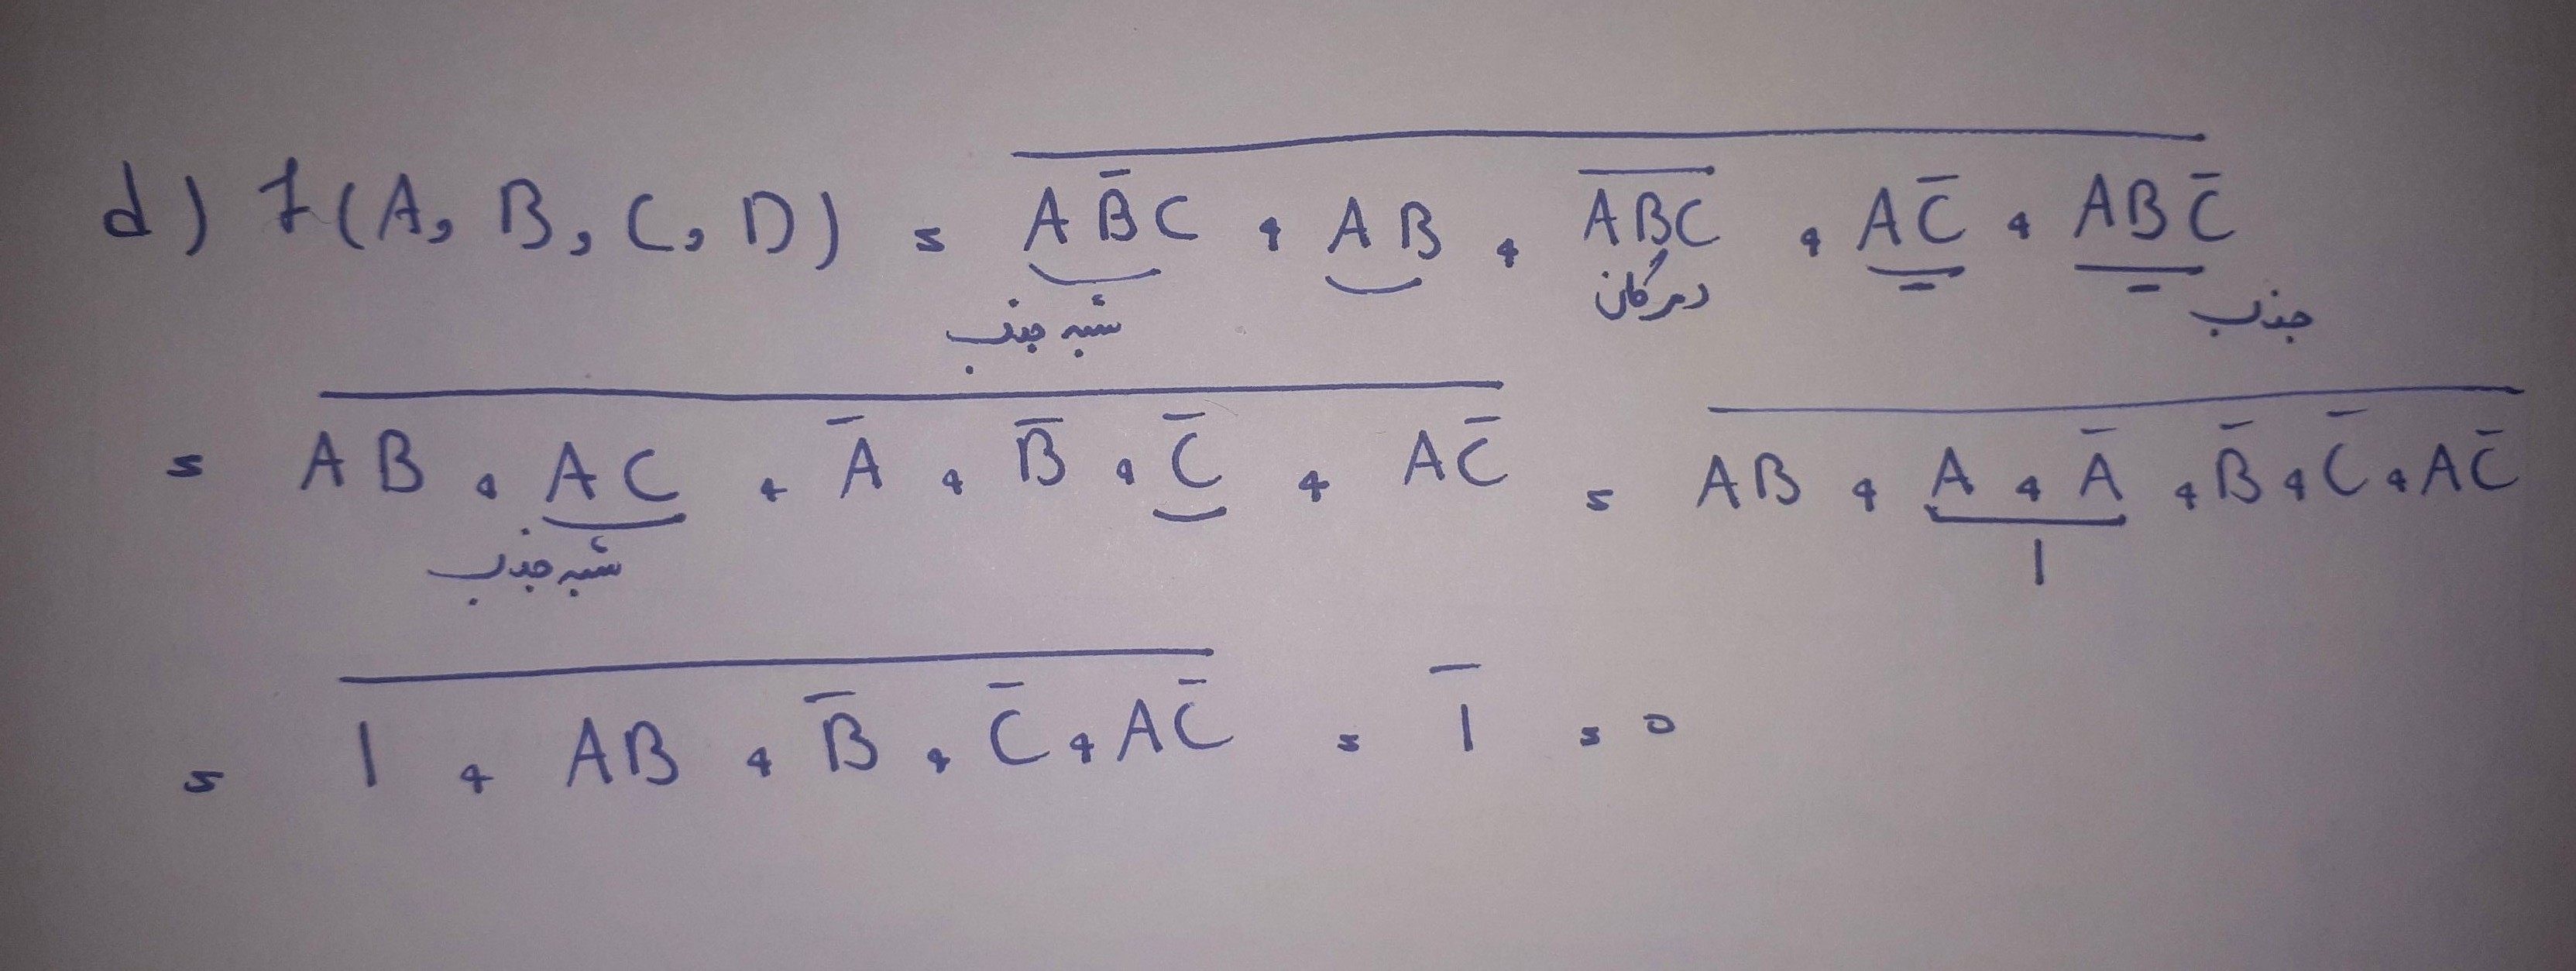 d) f(A, B, C, D) = \overline{A\bar{B}C + AB + \overline{ABC} + A\bar{C} + AB\bar{C}}
شبه جذب دمرگان جذب
= \overline{AB + AC + \bar{A} + \bar{B} + \bar{C} + A\bar{C}} = \overline{AB + A + \bar{A} + \bar{B} + \bar{C} + A\bar{C}}
شبه جذب 1
= \overline{1 + AB + \bar{B} + \bar{C} + A\bar{C}} = \bar{1} = 0